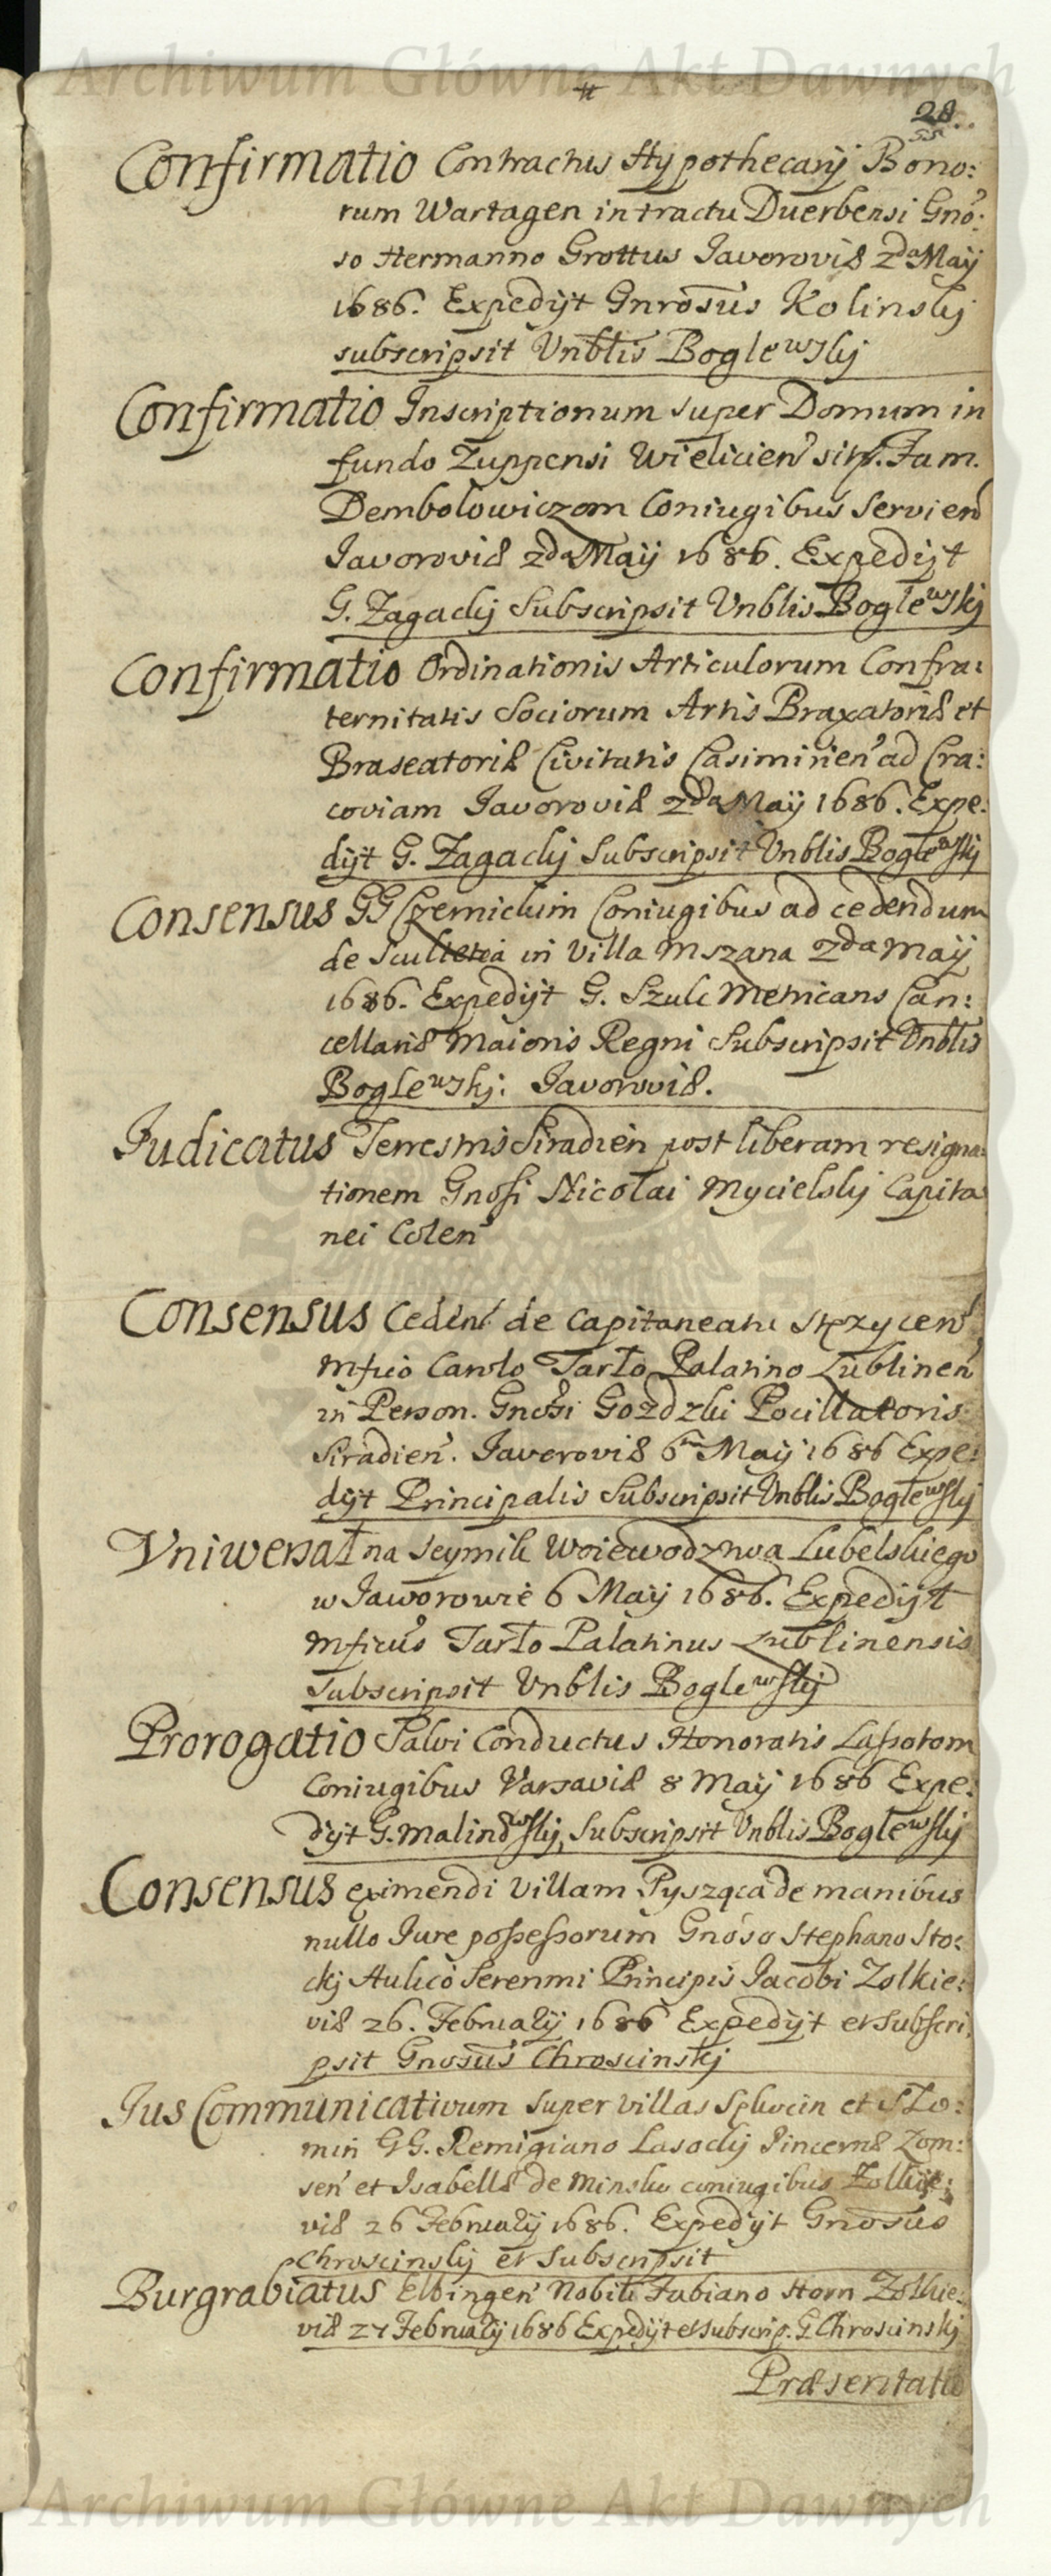 Archiwum Główne Akt Dawnych
28.
55
Confirmatio Contractus Hypothecarÿ Bono:
rum Wartagen in tractu Duerbensi Gnō:
so Hermanno Grottus Javoroviæ 2da Maÿ
1686. Expedÿt Gnrosus Kolinskj
subscripsit Vnblis Boglewskj
Confirmatio Inscriptionum super Domum in
fundo Zuppensi Wielicien̄ Fam.
Dembolowiczom Coniugibus Servien̄
Javoroviæ 2da Maÿ 1686. Expedÿt
G. Zagackj Subscripsit Vnblis Boglewskj
Confirmatio Ordinationis Articulorum Confra:
ternitatis Sociorum Artis Braxatoriæ et
Braseatoriæ Civitatis Casimirien̄ ad Cra:
coviam Javoroviæ 2da Maÿ 1686. Expe:
dÿt G. Zagackj Subscripsit Vnblis Boglewskj
Consensus GG Czernickim Coniugibus ad cedendum
de Scultetia in Villa Mszana 2da Maÿ
1686. Expedÿt G. Szulc Metricans Can:
cellariæ Maioris Regni Subscripsit Vnblis
Boglewskj: Javoroviæ.
Judicatus Terrestris Siradien̄ post liberam resigna:
tionem Gnosi Nicolai Mycielskj Capita
nei Colen̄
Consensus Ceden̄ de Capitaneatu Stęzycen̄
Mfico Carolo Tarło Palatino Lublinen̄
in Person. Gnosi Gozdzki Pocillatoris
Siradien̄. Javoroviæ 6ta Maÿ 1686 Expe:
dÿt Principalis Subscripsit Vnblis Boglewskj
Vniwersał na Seymik Woiewodztwa Lubelskiego
w Jaworowie 6 Maÿ 1686. Expedÿt
Mficus Tarło Palatinus Lublinensis
Subscripsit Vnblis Boglewskj
Prorogatio Salvi Conductus Honoratis Lassotom
Coniugibus Varsaviæ 8 Maÿ 1686 Expe:
dÿt G. Malinowskj, Subscripsit Vnblis Boglewskj
Consensus eximendi Villam Pysząca de manibus
nullo Jure possessorum Gnoso Stephano Sto:
ckj Aulico Serenmi Principis Jacobi Zolkie:
viæ 26. Februarÿ 1686 Expedÿt et subscri:
psit Gnosus Chroscinskj
Jus Communicativum super villas et Sło:
min GG. Remigiano Lasockj Pincernæ Zom:
sen̄ et Isabellæ de Minsko coniugibus Zolkie:
viæ 26 Februarÿ 1686. Expedÿt Gnosus
Chroscinskj et Subscripsit
Burgrabiatus Elbingen̄ Nobili Fabiano Horn Zolkie:
viæ 27 Februarÿ 1686 Expedÿt et subscrip. G. Chroscinskj
Præsentatio
Archiwum Główne Akt Dawnych